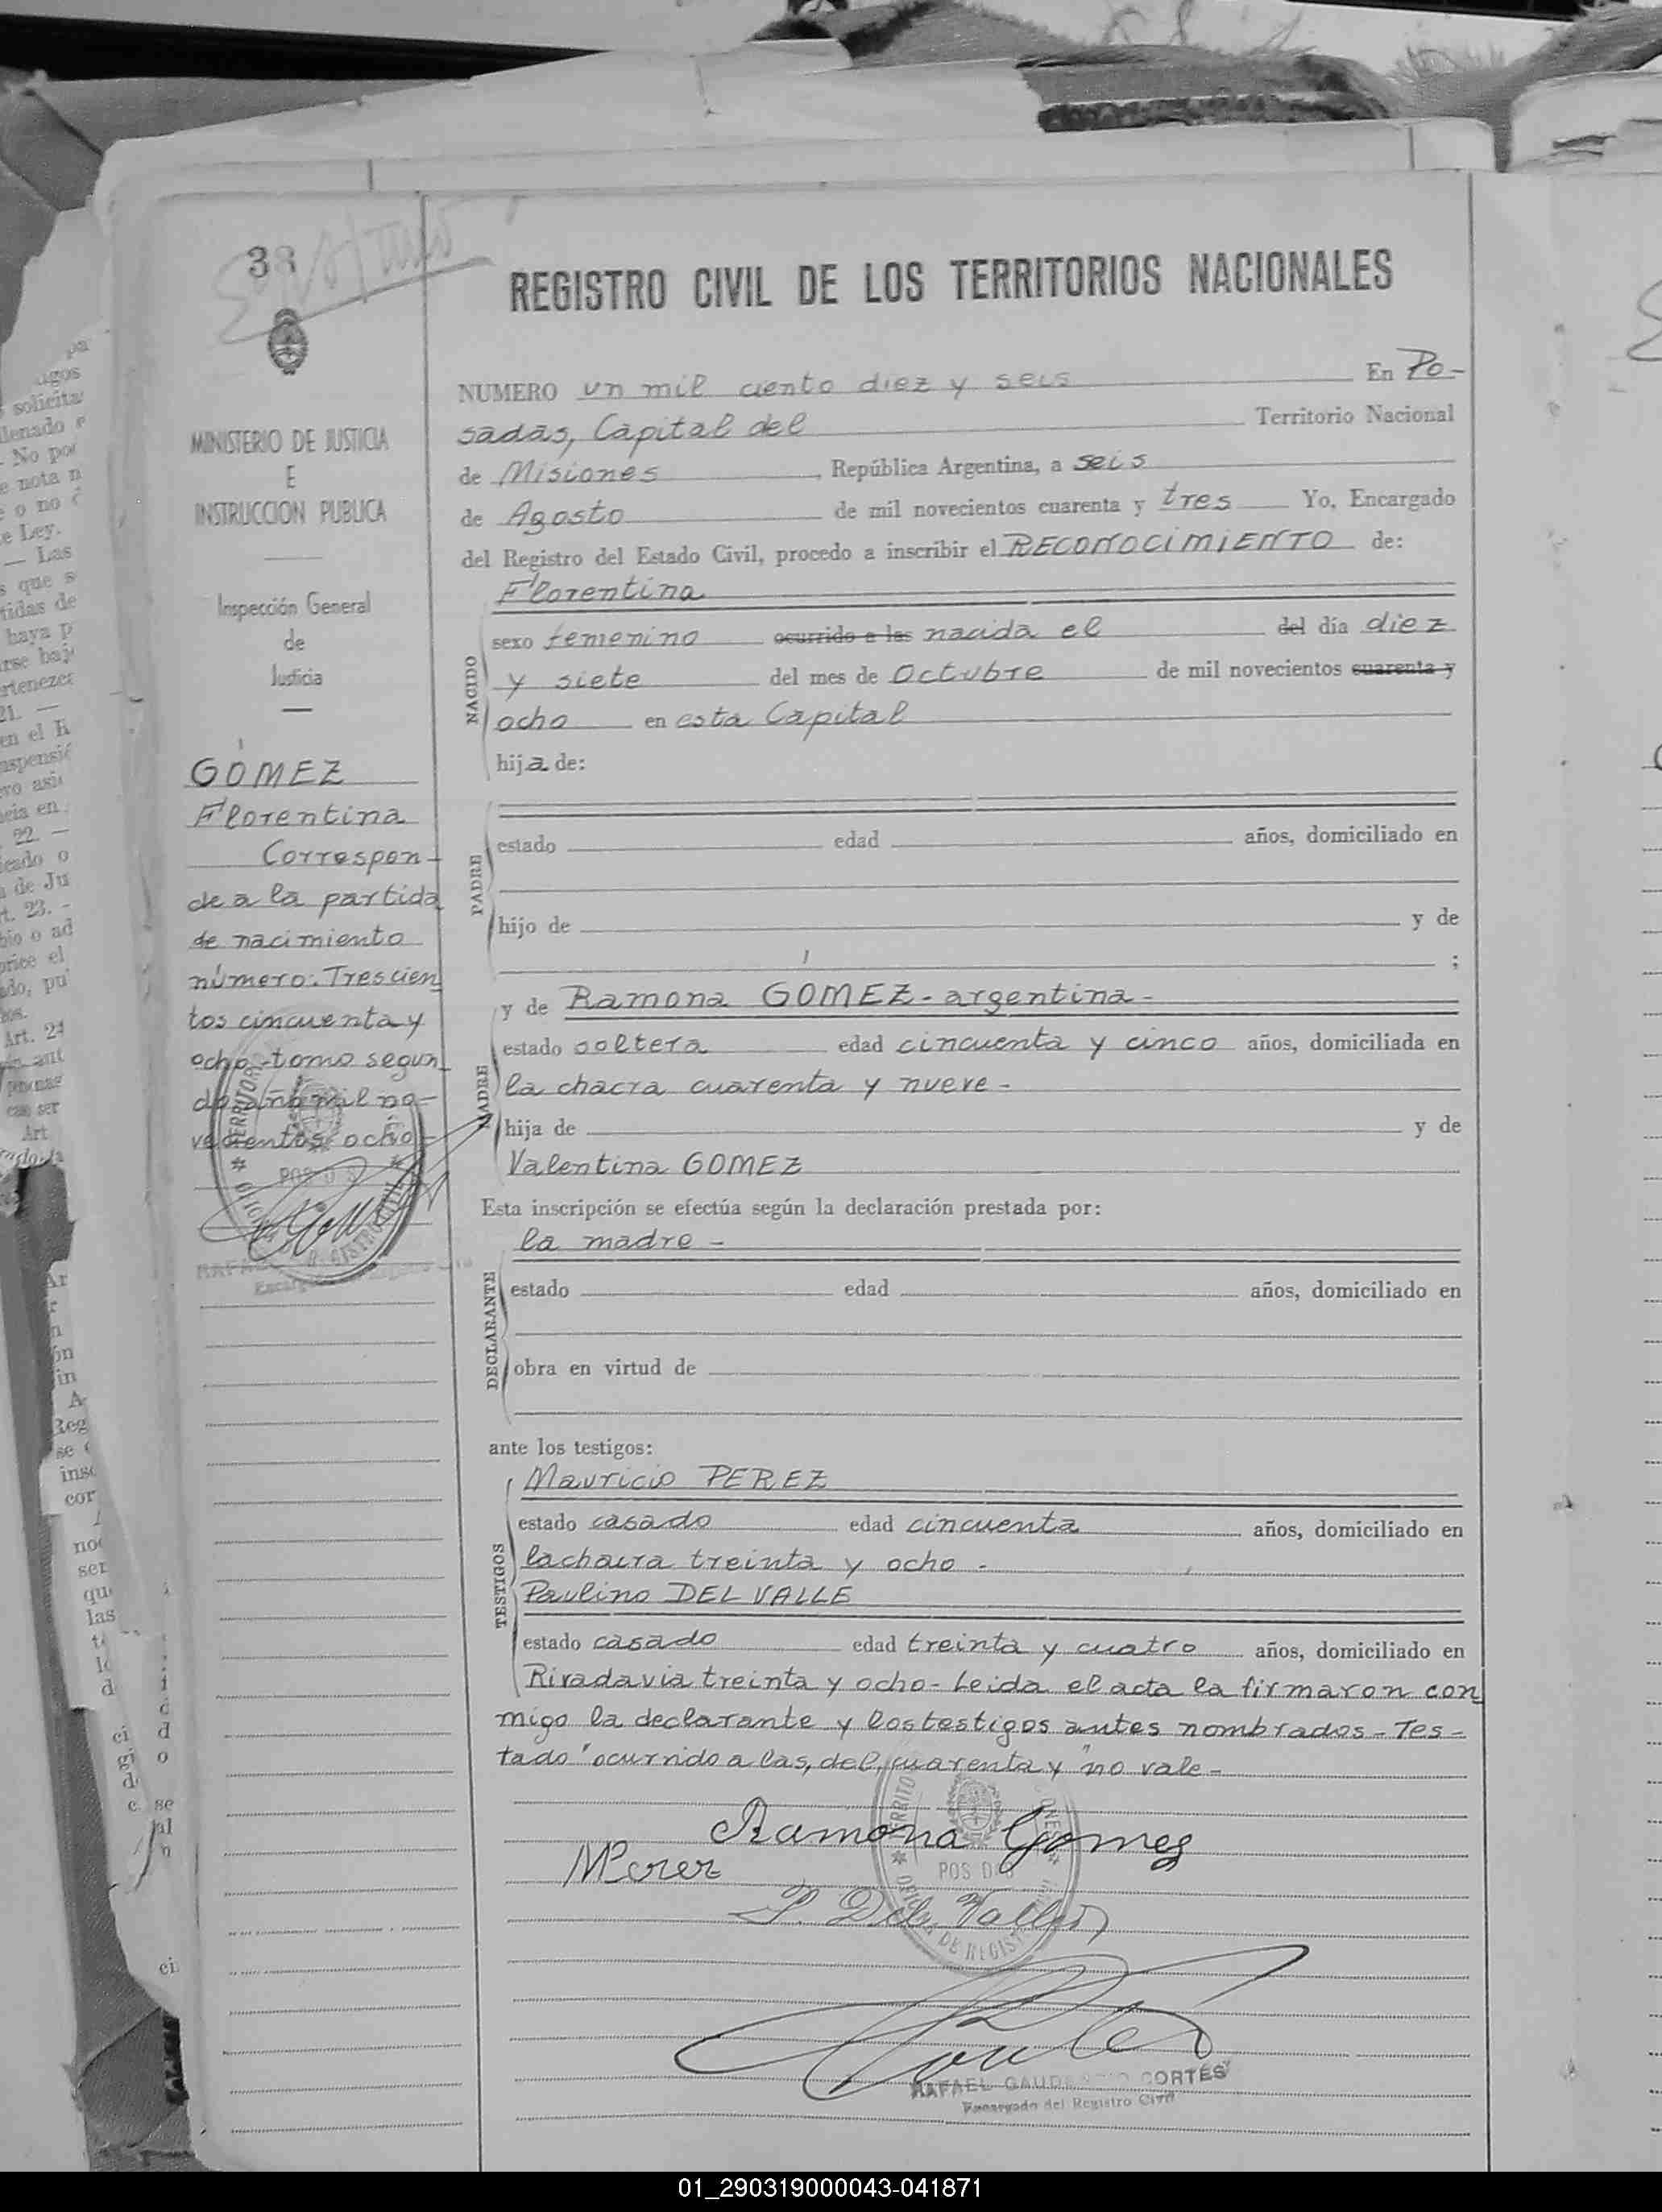 38
REGISTRO CIVIL DE LOS TERRITORIOS NACIONALES
MINISTERIO DE JUSTICIA
E
INSTRUCCION PUBLICA
Inspección General
de
Justicia
GOMEZ
Florentina
Correspon-
de a la partida
de nacimiento
número: Trescien
tos cincuenta y
ocho-tomo segun
do año mil no-
vecientos ocho-
NUMERO un mil ciento diez y seis En Po-
sadas, Capital del Territorio Nacional
de Misiones, República Argentina, a seis
de Agosto de mil novecientos cuarenta y tres Yo, Encargado
del Registro del Estado Civil, procedo a inscribir el RECONOCIMIENTO de:
Florentina
NACIDO
sexo femenino ocurrido a las nacida el del día diez
y siete del mes de Octubre de mil novecientos cuarenta y
ocho en esta Capital
hija de:
PADRE
estado edad años, domiciliado en
hijo de y de
;
MADRE
y de Ramona GOMEZ-argentina-
estado soltera edad cincuenta y cinco años, domiciliada en
la chacra cuarenta y nueve-
hija de y de
Valentina GOMEZ
Esta inscripción se efectúa según la declaración prestada por:
la madre-
DECLARANTE
estado edad años, domiciliado en
obra en virtud de
ante los testigos:
TESTIGOS
Mauricio PEREZ
estado casado edad cincuenta años, domiciliado en
la chacra treinta y ocho-
Paulino DEL VALLE
estado casado edad treinta y cuatro años, domiciliado en
Rivadavia treinta y ocho-Leida el acta la firmaron con
migo la declarante y los testigos antes nombrados-Tes-
tado "ocurrido a las, del, cuarenta y" no vale-
Ramona Gomez
MPerez
P. Del Valle
RAFAEL GAUDENCIO CORTÉS
Encargado del Registro Civil
01_290319000043-041871